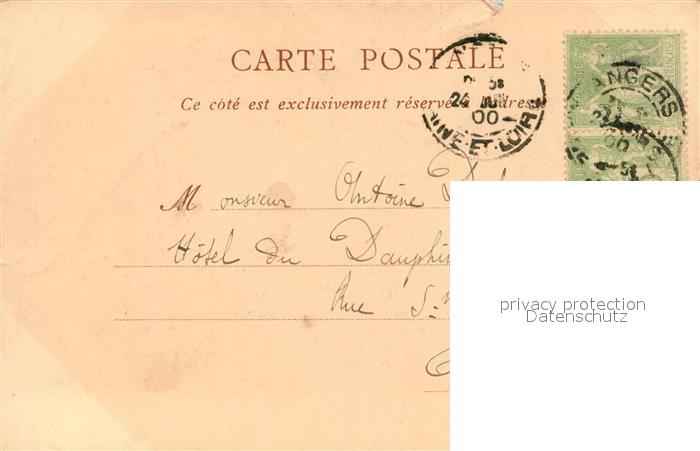 CARTE POSTALE
Ce côté est exclusivement réservé à l'adresse
24
00
NE-ET-LOIRE
ANGERS
Monsieur Antoine
Hôtel du Dauphin
Rue S-
privacy protection
Datenschutz